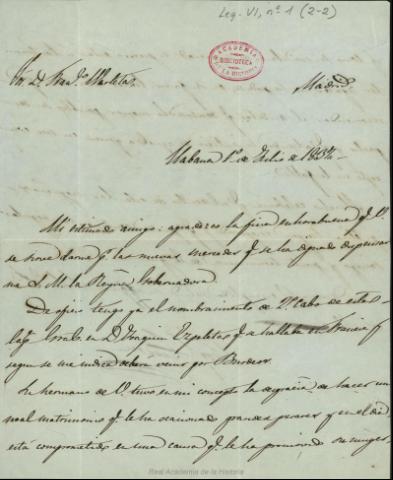 Leg. VI, nº 1 (2-2)
ACADEMIA
BIBLIOTECA
DE LA HISTORIA
Sr. D. Fran.co
Madrid.
Habana 1º de Julio de 1834.
Mi estimado amigo: agradezco la fina enhorabuena q.e V.
se sirve darme p.r las nuevas mercedes q.e se ha dignado dispensar
me S. M. la Reyna Gobernadora.
De oficio tengo ya el nombramiento de 2º Cabo de esta
en D. Joaquin Ezpeleta q.e se hallaba en Francia y
segun se me indica debera venir por Burdeos.
Su hermano de V. tuvo en mi concepto la desgracia de hacer un
mal matrimonio q.e le ha ocasionado grandes pesares y en el dia
está comprometido en una causa q.e le ha promovido su muger,
Real Academia de la Historia